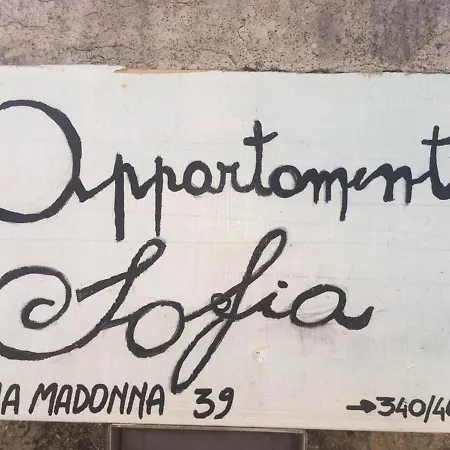 Appartament
Sofia
IA MADONNA 39
→340/4